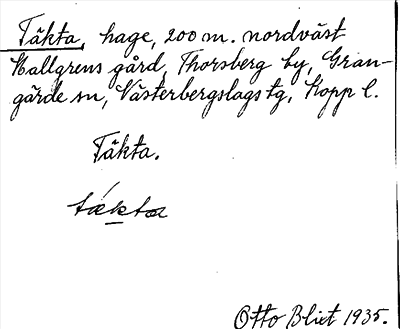 Täkta, hage, 200 m. nordväst
Hallgrens gård, Thorsberg by, Gran-
gärde sn, Västerbergslags tg, Kopp l.
Täkta.
tǽkta
Otto Blixt 1935.